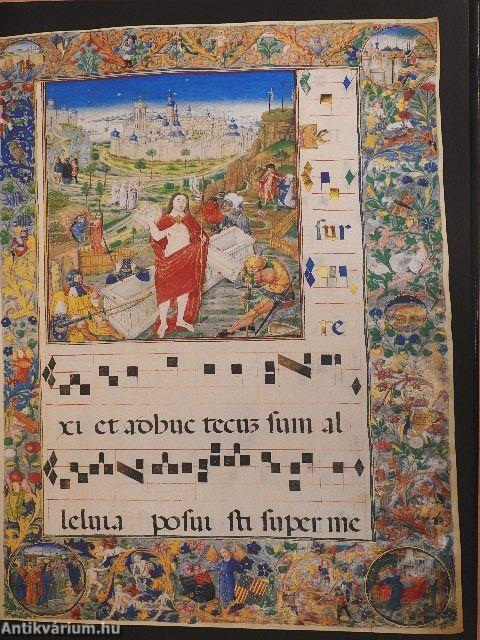 sur
re
xi et adhuc tecuz sum al
leluia posui sti super me
Antikvárium.hu
Antikvárium.hu